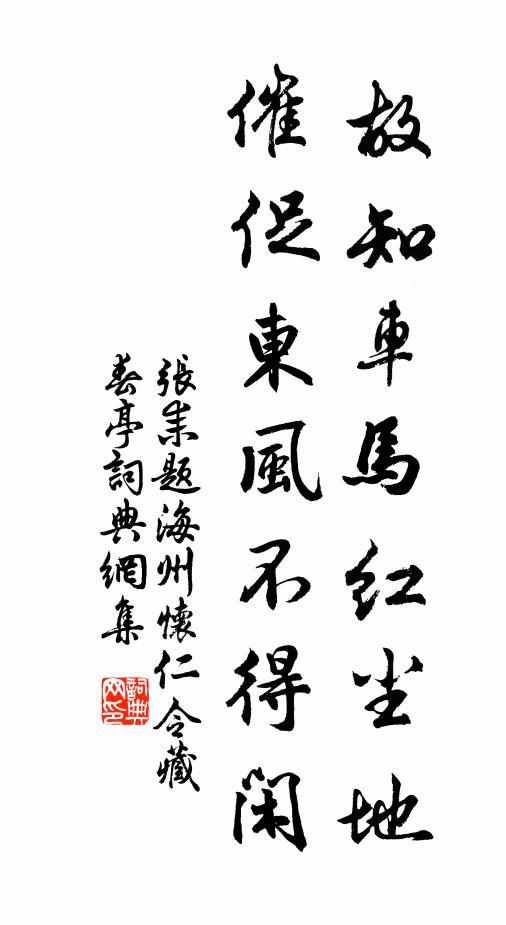 故知車馬紅尘地
催促東風不得闲
張耒題海州懷仁令藏
春亭詞典網集
詞典
网印